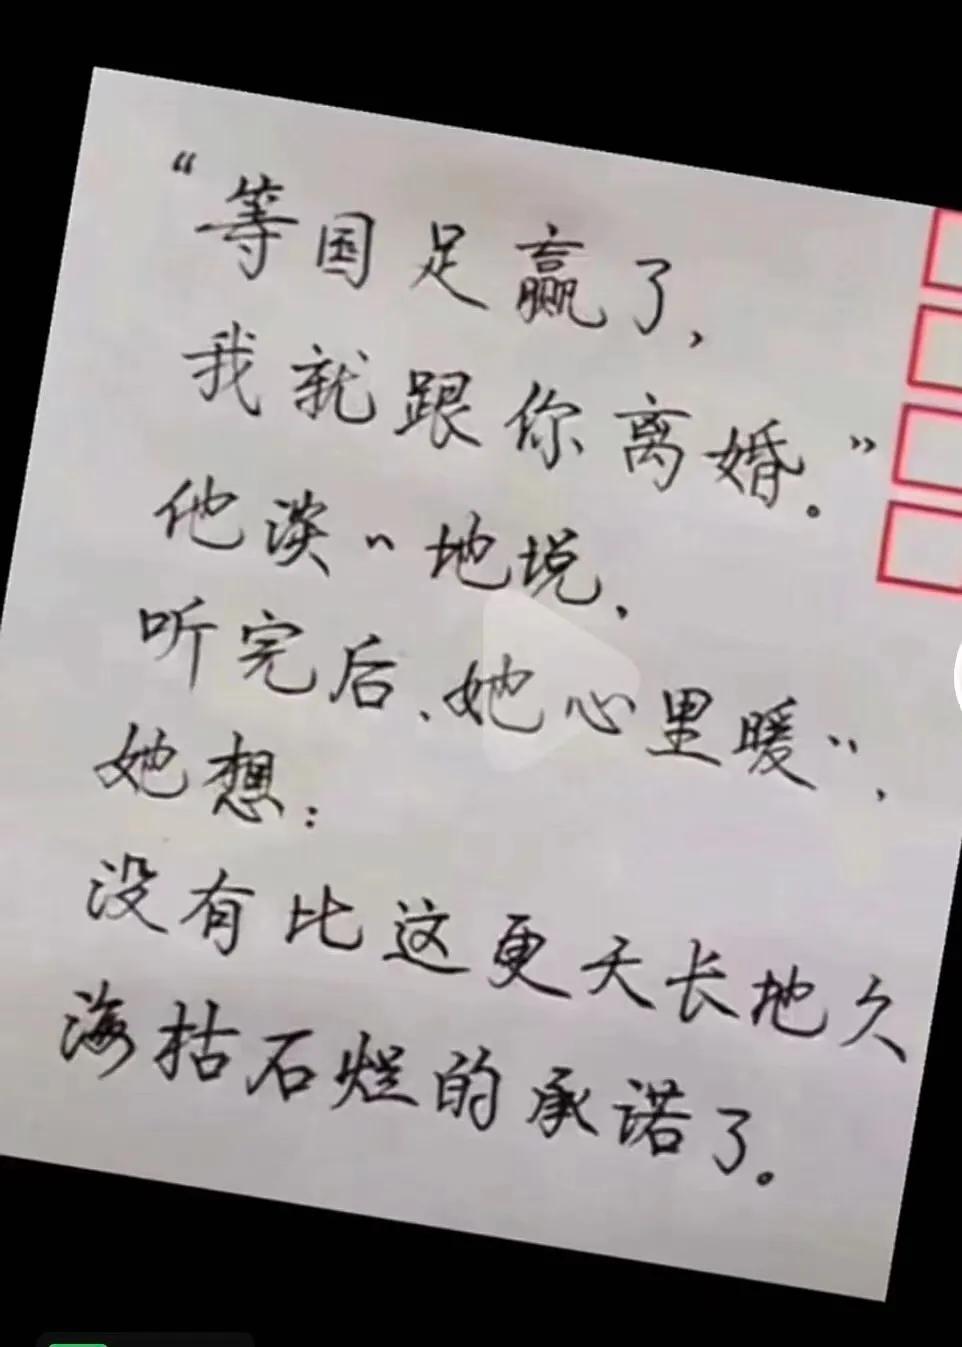 “等国足赢了,
我就跟你离婚。”
他淡〃地说,
听完后、她心里暖〃,
她想:
没有比这更天长地久
海枯石烂的承诺了。